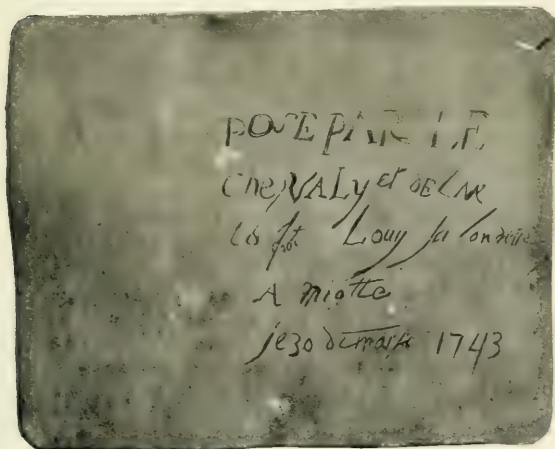 POSE PAR LE
CheVALyet DE LAR
to st Louy la londette
A miotte
le 30 de mars 1743